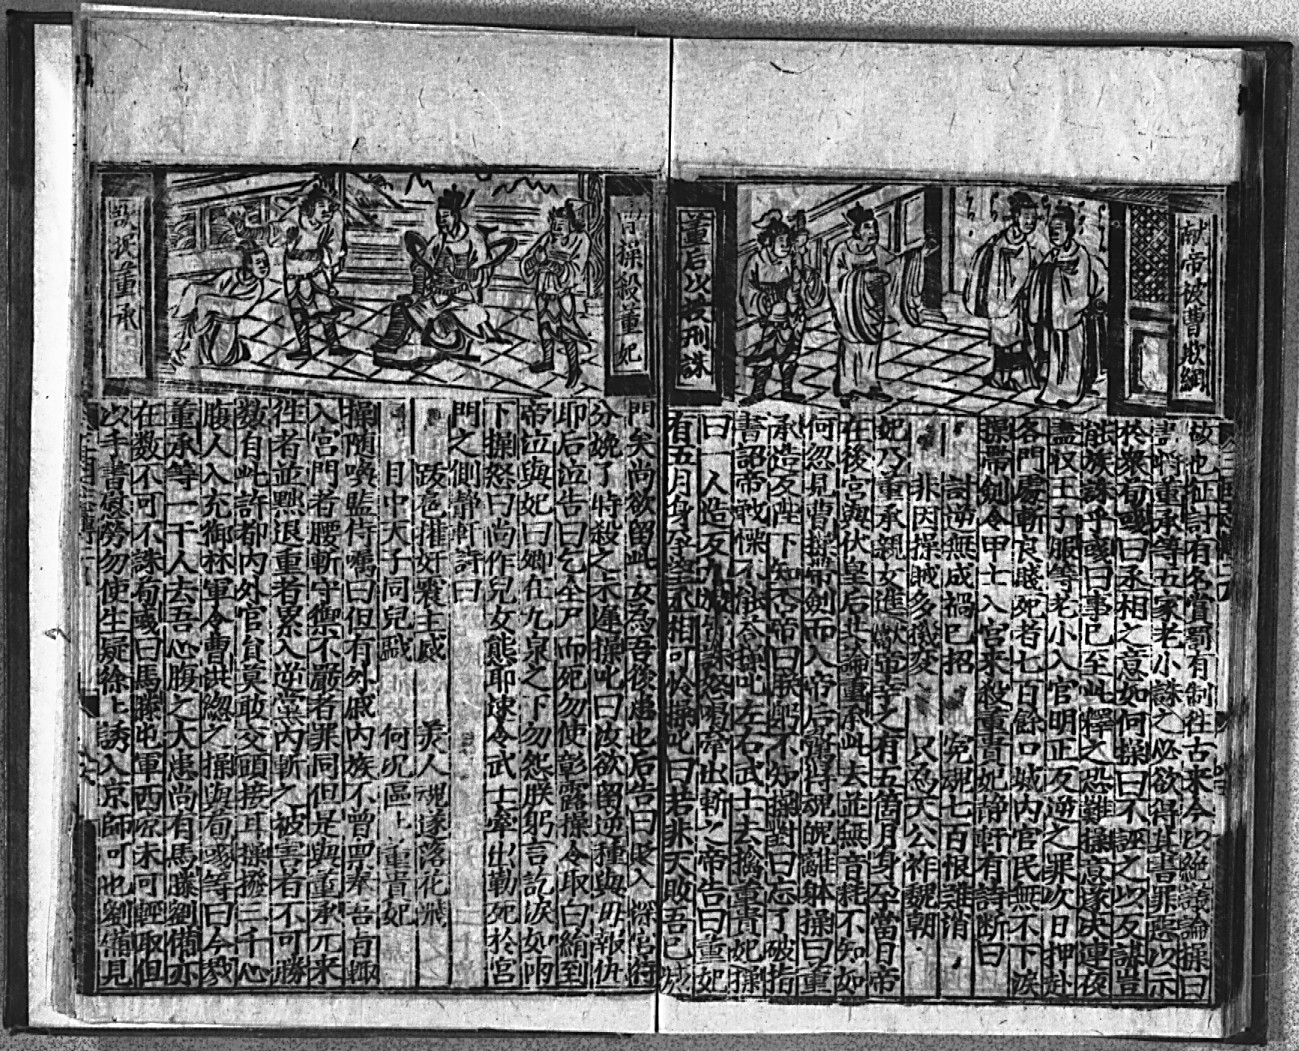 献帝被曹欺綱
董后以衣刑誅
故也征討有名賞罰有制在古來今以絕議論操曰
書將董承等五家老小誅之必欲得其書罪惡以示
於衆荀彧曰丞相之意如何操曰不誣之以反謀豈
能族誅乎彧曰事已至此釋之恐難操意遂決連夜
盡收王子服等老小入官明正反逆之罪次日押赴
各門處斬良賤死者七百餘口城內官民無不下淚
操帶劍令甲士入宮來殺董貴妃靜軒有詩斷曰
討逆無成禍已招 冤魂七百恨難消
非因操賊多機變 又為天公祚魏朝
妃乃董承親女進獻 幸之有五箇月身孕當日帝
在後宮與伏皇后共論董承此去並無音耗不知如
何忽見曹操帶劍而入帝后驚得魂魄離躰操曰董
承造反陛下知否帝曰朕躬不知操對曰忘了破指
書詔帝戰慄不能答操叱左右武士去擒董貴妃操
曰一人造反九族皆誅怒喝牽出斬之帝告曰董妃
有五月身孕望丞相可怜操叱曰若非天敗吾已
曹操殺董妃
董承
門矣尚欲留此女為吾後患也后告曰貶入深宮待
分娩了時殺之未遲操叱曰汝欲留逆種與母報仇
耶后泣告曰乞全尸而死勿使彰露操令取白絹到
帝泣與妃曰卿在九泉之下勿怨朕躬言訖淚如雨
下操怒曰尚作兒女態耶速令武士牽出勒死於宮
門之側靜軒詩曰
跋扈權奸震主威 美人魂逐落花飛
目中天子同兒戲 何況區上董貴妃
操隨喚監侍囑曰但有外戚內族不曾禀奉吾旨輒
入宮門者腰斬守禦不嚴者罪同但是與董承元來
徃者並點退重者累入逆黨內斬之被害者不可勝
数自此許都內外官員莫敢交頭接耳操撥三千心
腹人入充御林軍令曹洪總之操與荀彧等曰今戮
董承等一干人去吾心腹之大患尚有馬騰劉備亦
在数不可不誅荀彧曰馬騰屯軍西凉未可輕取但
以手書慰勞勿使生疑徐上誘入京師可也劉備見